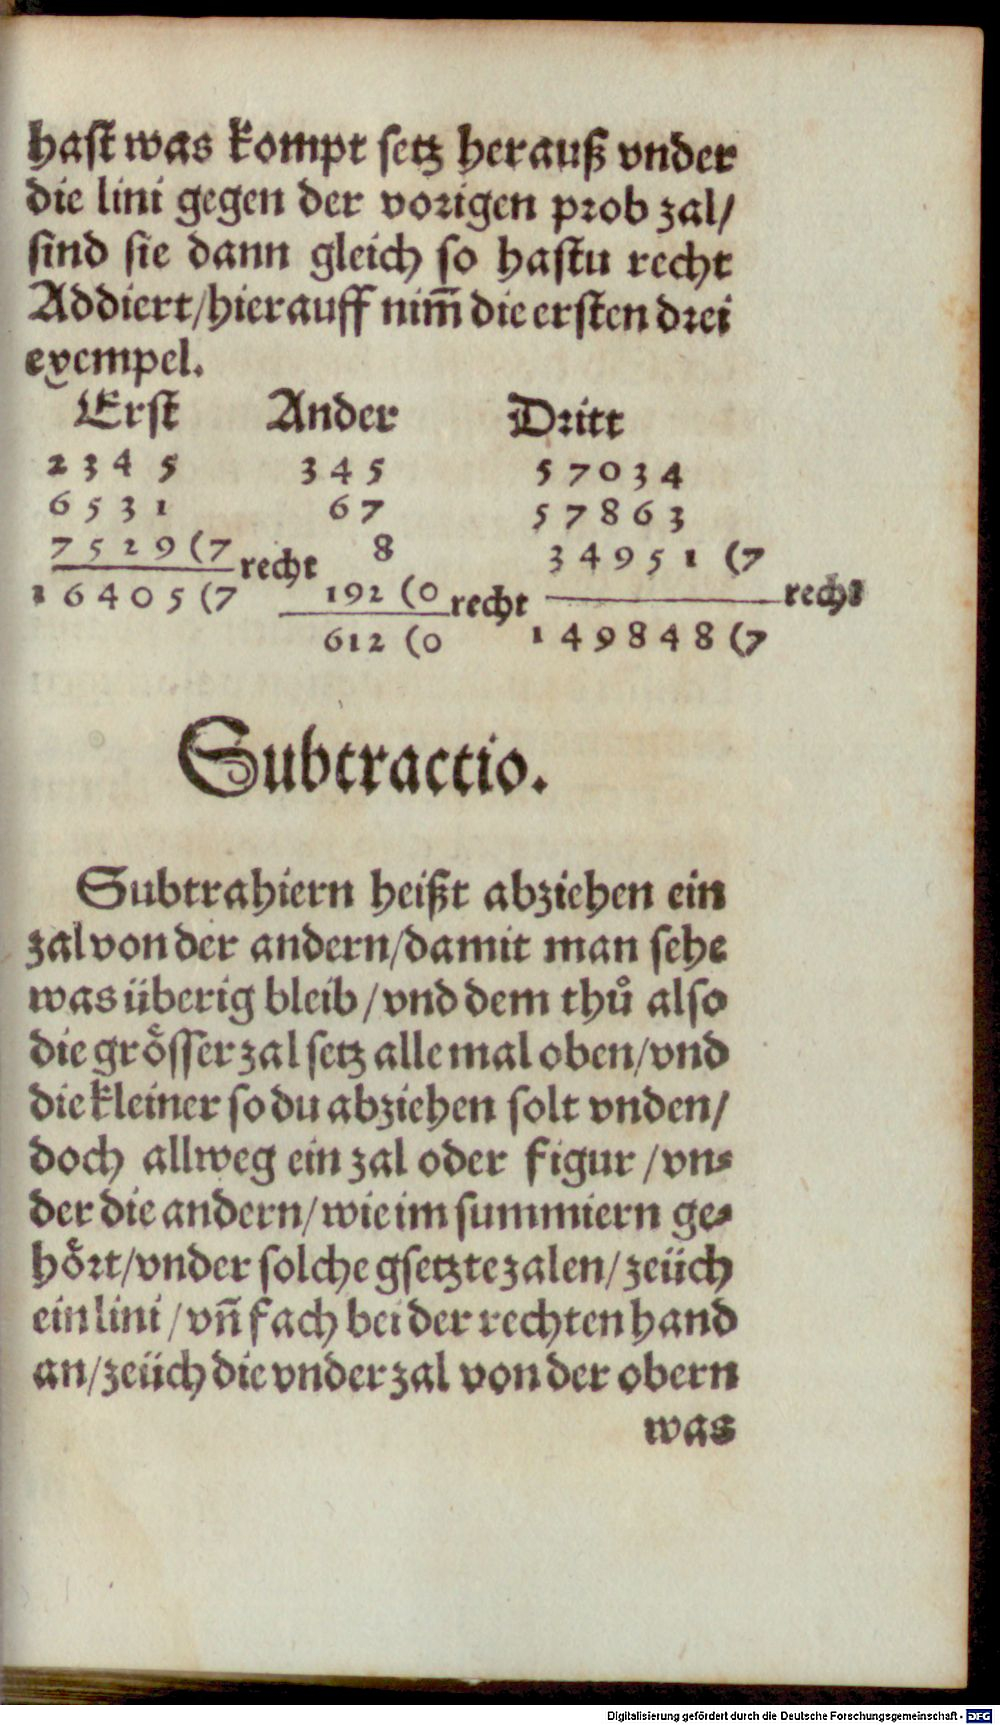 hast was kompt setz herauß vnder
die lini gegen der vorigen prob zal/
sind sie dann gleich so hastu recht
Addiert/hierauff nim̃ die ersten drei
exempel.
Erst Ander Dritt
2 3 4 5 3 4 5 5 7 0 3 4
6 5 3 1 6 7 5 7 8 6 3
7 5 2 9 (7 recht 8 3 4 9 5 1 (7
1 6 4 0 5 (7 192 (0 recht recht
612 (0 1 4 9 8 4 8 (7
Subtractio.
Subtrahiern heißt abziehen ein
zal von der andern/damit man sehe
was überig bleib/vnd dem thů also
die grösser zal setz alle mal oben/vnd
die kleiner so du abziehen solt vnden/
doch allweg ein zal oder figur/vn⸗
der die andern/wie im summiern ge⸗
hört/vnder solche gsetzte zalen/zeüch
ein lini/vñ fach bei der rechten hand
an/zeüch die vnder zal von der obern
was
Digitalisierung gefördert durch die Deutsche Forschungsgemeinschaft - DFG